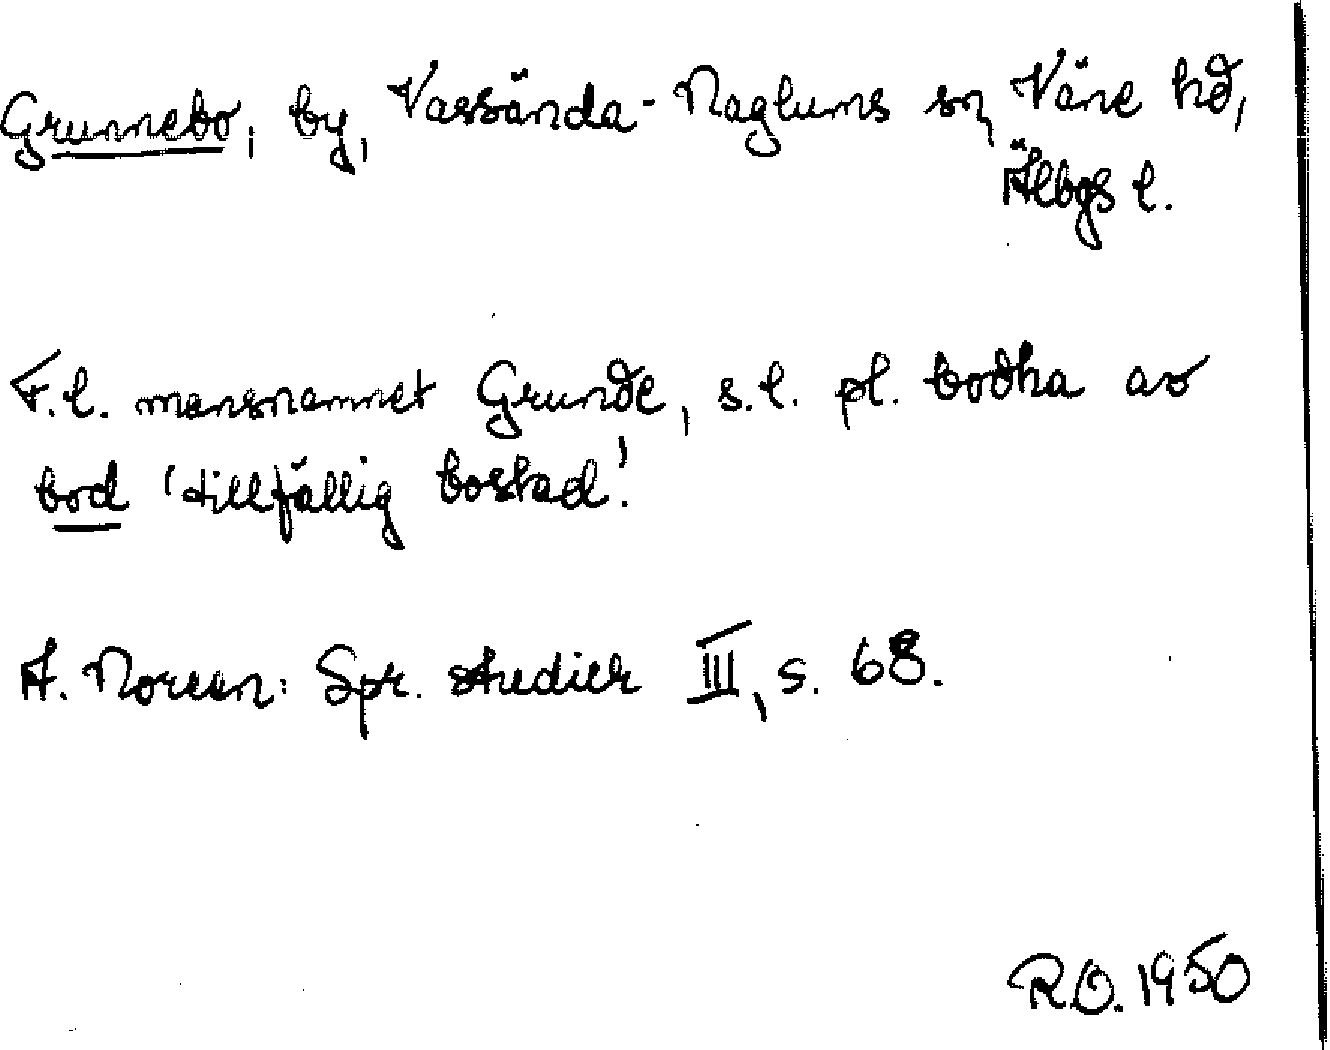 Grunnebo, by, Vassända-Naglums sn, Väne hd,
Älbgs l.
F.l. mansnamnet Grunde, s.l. pl. bodha av
bod 'tillfällig bostad'.
A. Noreen: Spr. studier III, s. 68.
R.O. 1950